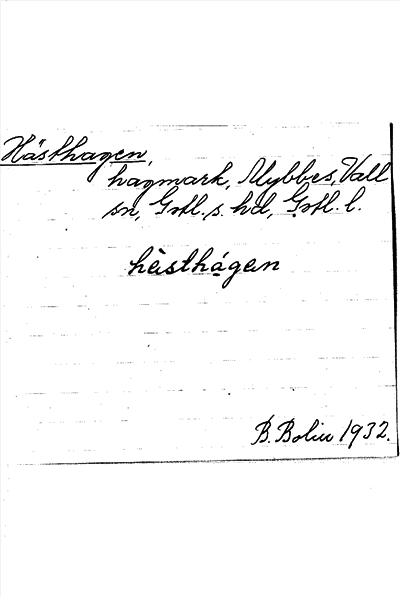 Hästhagen,
hagmark, Mybbes, Vall
sn, Gotl. s. hd, Gotl. l.
hästhágen
B. Bolin 1932.